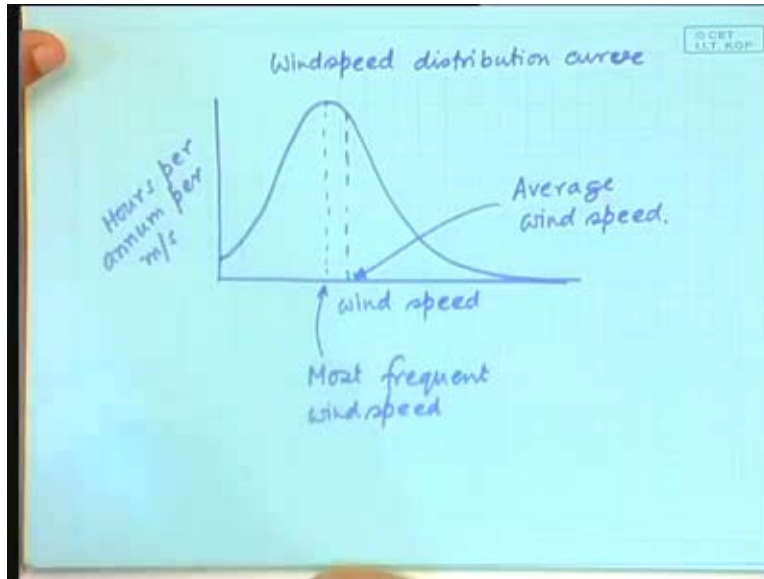 © CET
I.I.T. KGP
Windspeed distribution curve
Hours per
annum per
m/s
Average
wind speed.
wind speed
Most frequent
windspeed